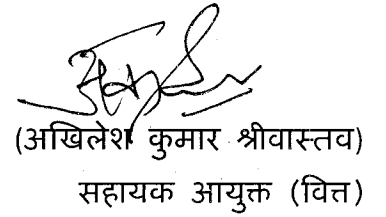 (अखिलेश कुमार श्रीवास्तव)
सहायक आयुक्त (वित्त)